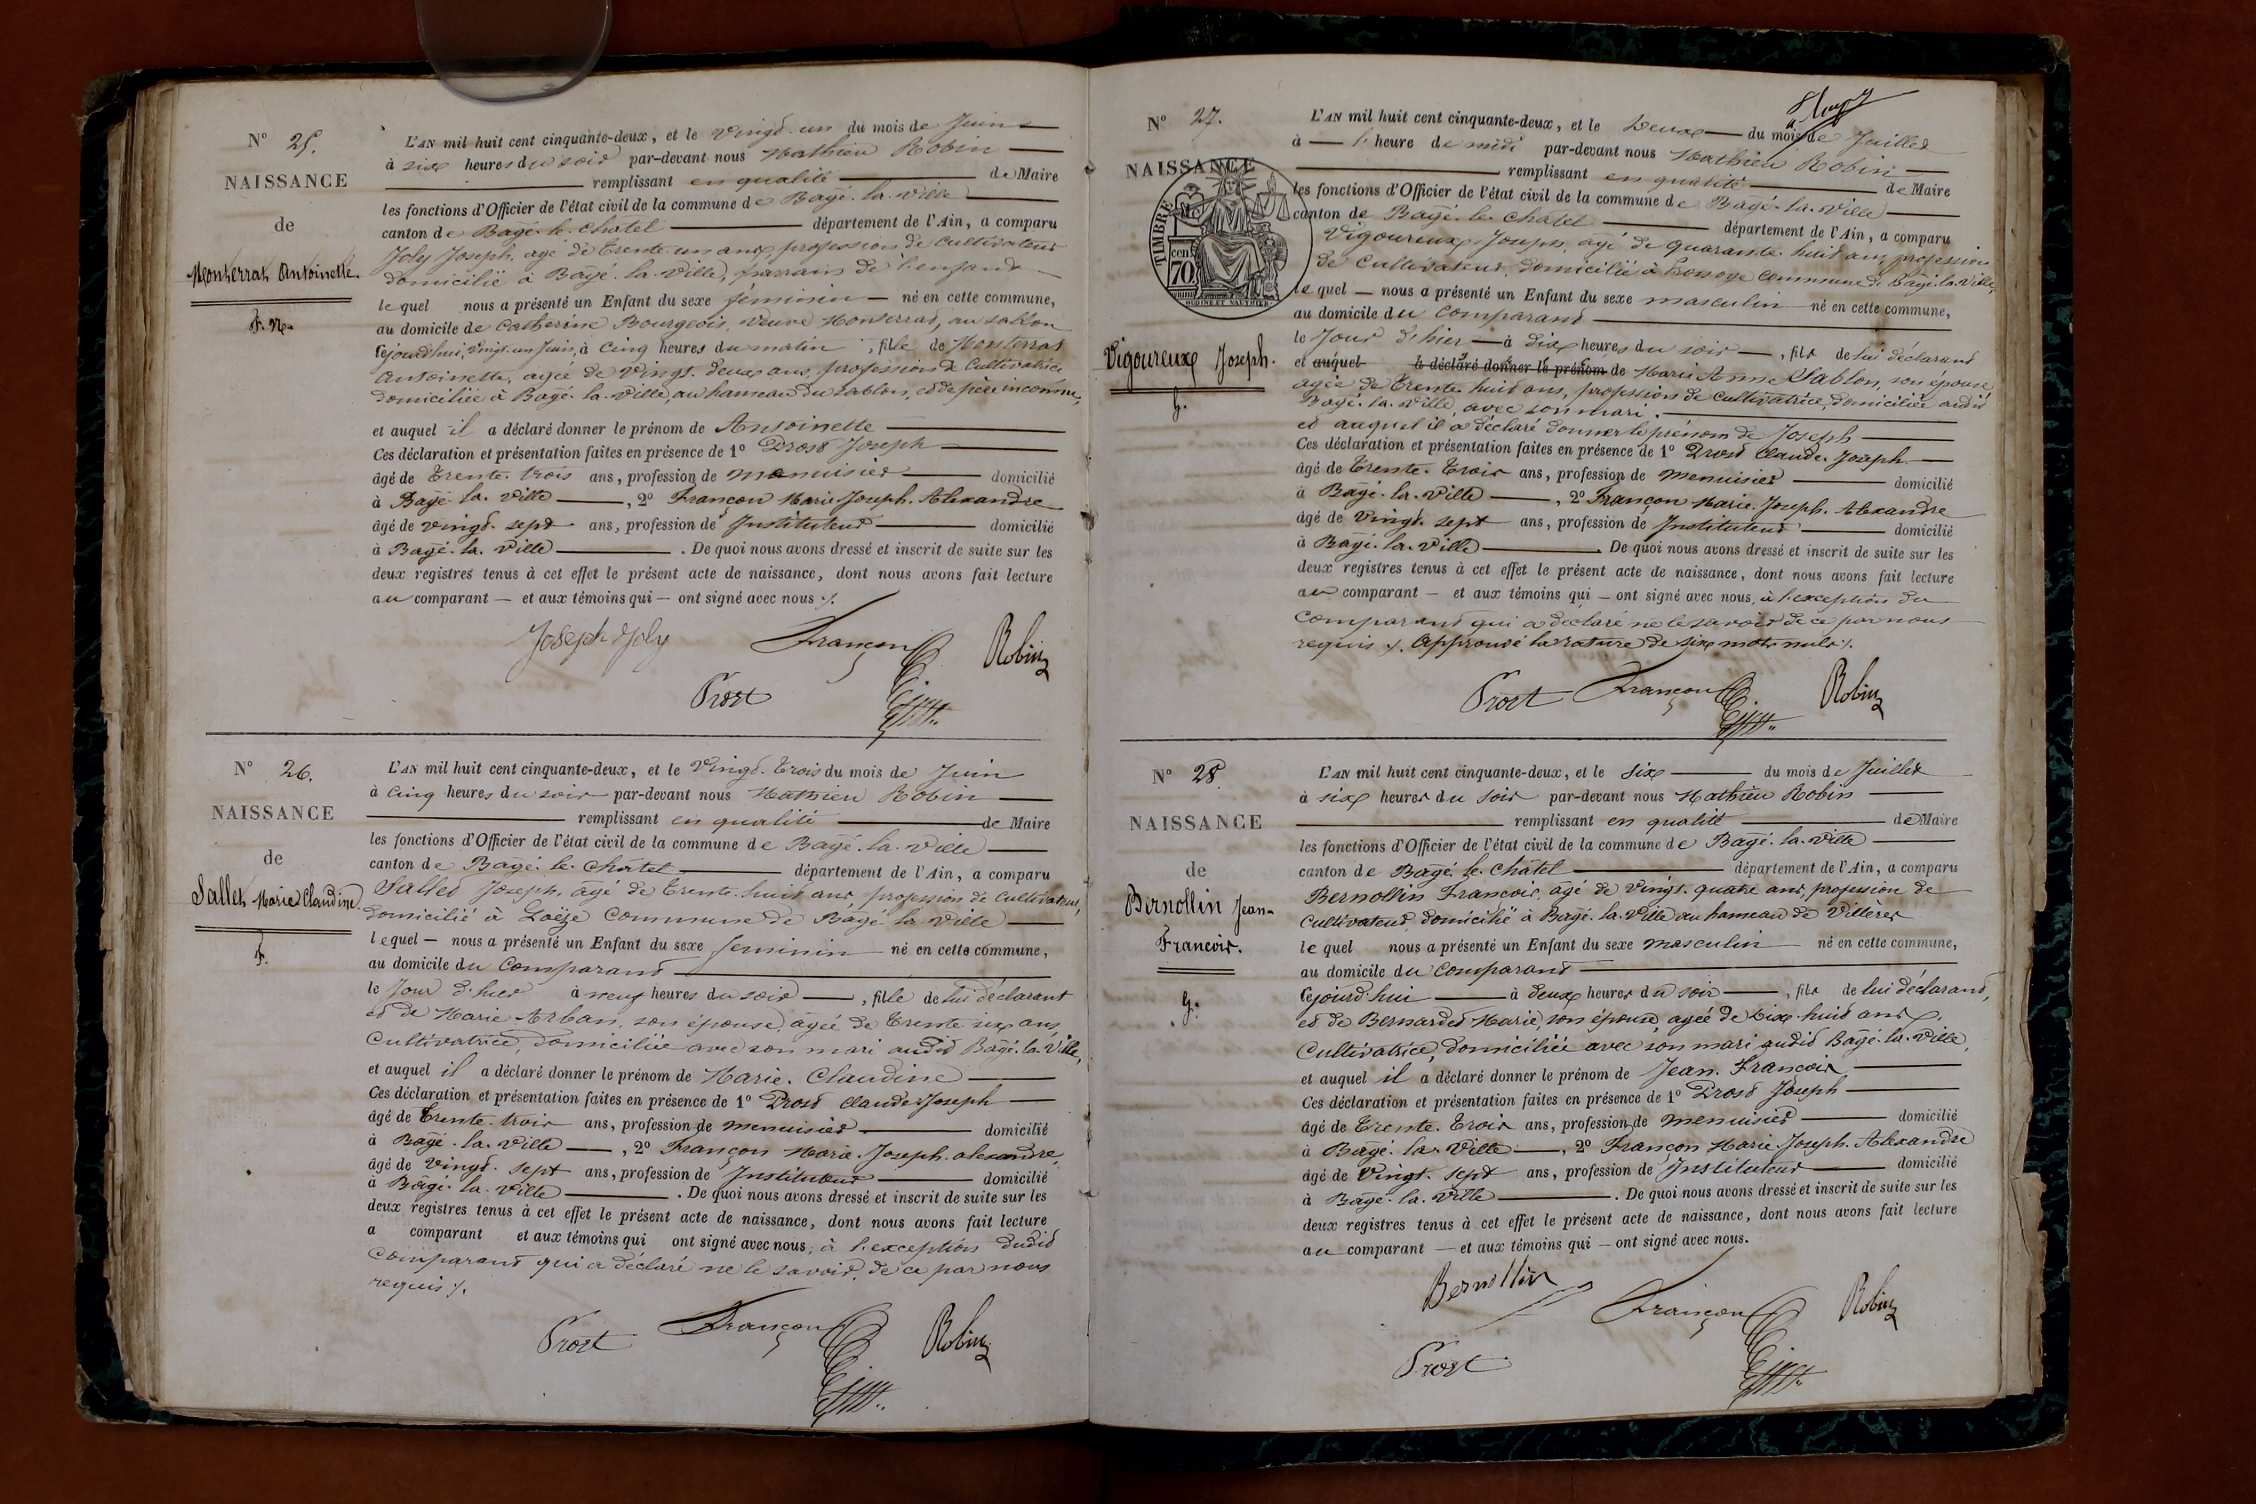 N° 25.
NAISSANCE
de
Monterrat Antoinette.
F. Nle
L'AN mil huit cent cinquante-deux, et le vingt-un du mois de Juin
à six heures du soir par-devant nous Mathieu Robin
remplissant en qualité de Maire
les fonctions d'Officier de l'état civil de la commune de Bagé-la-Ville
canton de Bagé-le-Châtel département de l'Ain, a comparu
Joly Joseph, agé de trente-un ans, profession de cultivateur
domicilié à Bagé-la-Ville, parrain de l'enfant
lequel nous a présenté un Enfant du sexe féminin né en cette commune,
au domicile de Catherine Bourgeois, veuve Monterrat, au sablon
cejourd'hui, vingt-un Juin, à cinq heures du matin, fille de Monterrat
Antoinette, agée de vingt-deux ans, profession de Cultivatrice
domiciliée à Bagé-la-Ville, au hameau du sablon, et de père inconnu,
et auquel il a déclaré donner le prénom de Antoinette
Ces déclaration et présentation faites en présence de 1° Prost Joseph
âgé de trente-trois ans, profession de menuisier domicilié
à Bagé-la-Ville, 2° Françon Marie-Joseph-Alexandre
âgé de vingt-sept ans, profession de Instituteur domicilié
à Bagé-la-Ville. De quoi nous avons dressé et inscrit de suite sur les
deux registres tenus à cet effet le présent acte de naissance, dont nous avons fait lecture
au comparant et aux témoins qui ont signé avec nous ./.
Joseph Joly Françon Robin
Prost
N° 26.
NAISSANCE
de
Sallet Marie Claudine.
F.
L'AN mil huit cent cinquante-deux, et le vingt-trois du mois de Juin
à cinq heures du soir par-devant nous Mathieu Robin
remplissant en qualité de Maire
les fonctions d'Officier de l'état civil de la commune de Bagé-la-Ville
canton de Bagé-le-Châtel département de l'Ain, a comparu
Sallet Joseph, agé de trente-huit ans, profession de Cultivateur,
domicilié à Loëze commune de Bagé-la-Ville
lequel nous a présenté un Enfant du sexe feminin né en cette commune,
au domicile du comparant
le jour d'hier à neuf heures du soir, fille de lui déclarant
et de Marie Arban, son épouse, âgée de trente-six ans,
cultivatrice, domiciliée avec son mari audit Bagé-la-Ville,
et auquel il a déclaré donner le prénom de Marie-Claudine
Ces déclaration et présentation faites en présence de 1° Prost Claude-Joseph
âgé de trente-trois ans, profession de menuisier domicilié
à Bagé-la-Ville, 2° Françon Marie-Joseph-alexandre,
âgé de vingt-sept ans, profession de Instituteur domicilié
à Bagé-la-Ville. De quoi nous avons dressé et inscrit de suite sur les
deux registres tenus à cet effet le présent acte de naissance, dont nous avons fait lecture
a comparant et aux témoins qui ont signé avec nous, à l'exception dudit
comparant qui a déclaré ne le savoir, de ce par nous
requis ./.
Prost Françon Robin
N° 27.
NAISSANCE
TIMBRE
cen
70
Vigoureux Joseph.
g.
L'AN mil huit cent cinquante-deux, et le deux du mois de Juillet
à l'heure de midi par-devant nous Mathieu Robin
remplissant en qualité de Maire
les fonctions d'Officier de l'état civil de la commune de Bagé-la-Ville
canton de Bagé-le-châtel département de l'Ain, a comparu
Vigoureux Joseph, agé de quarante-huit ans, profession
de Cultivateur, domicilié à commune de Bagé-la-Ville,
lequel nous a présenté un Enfant du sexe masculin né en cette commune,
au domicile du comparant
le jour d'hier à dix heures du soir, fils de lui déclarant
et auquel a déclaré donner le prénom de Marie Anne Sablon, son épouse
agée de trente-huit ans, profession de cultivatrice, domiciliée audit
Bagé-la-Ville, avec son mari.
et auquel il a déclaré donner le prénom de Joseph
Ces déclaration et présentation faites en présence de 1° Prost Claude-Joseph
âgé de trente-trois ans, profession de menuisier domicilié
à Bagé-la-Ville, 2° Françon Marie-Joseph-Alexandre
âgé de vingt-sept ans, profession de Instituteur domicilié
à Bagé-la-Ville. De quoi nous avons dressé et inscrit de suite sur les
deux registres tenus à cet effet le présent acte de naissance, dont nous avons fait lecture
au comparant et aux témoins qui ont signé avec nous, à l'exception du
comparant qui a déclaré ne le savoir de ce par nous
requis ./. Approuvé la rature de six mots nuls ./.
Prost Françon Robin
N° 28.
NAISSANCE
de
Bernollin Jean-
François.
g.
L'AN mil huit cent cinquante-deux, et le six du mois de Juillet
à six heures du soir par-devant nous Mathieu Robin
remplissant en qualité de Maire
les fonctions d'Officier de l'état civil de la commune de Bagé-la-Ville
canton de Bagé-le-Châtel département de l'Ain, a comparu
Bernollin Francois, agé de vingt-quatre ans, profession de
cultivateur, domicilié à Bagé-la-Ville au hameau de Villères
lequel nous a présenté un Enfant du sexe masculin né en cette commune,
au domicile du comparant
cejourd'hui à deux heures du soir, fils de lui déclarant,
et de Bernardet Marie, son épouse, agée de dix-huit ans,
Cultivatrice, domiciliée avec son mari audit Bagé-la-Ville,
et auquel il a déclaré donner le prénom de Jean-François
Ces déclaration et présentation faites en présence de 1° Prost Joseph
âgé de trente-trois ans, profession de menuisier domicilié
à Bagé-la-Ville, 2° Françon Marie-Joseph-Alexandre
âgé de vingt-sept ans, profession de Instituteur domicilié
à Bagé-la-Ville. De quoi nous avons dressé et inscrit de suite sur les
deux registres tenus à cet effet le présent acte de naissance, dont nous avons fait lecture
au comparant et aux témoins qui ont signé avec nous.
Bernollin Françon Robin
Prost